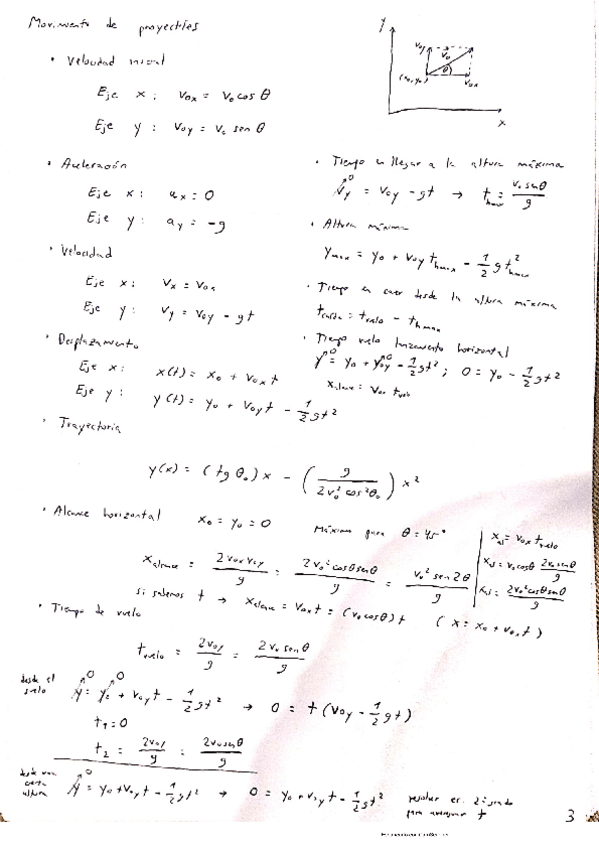 Movimiento de proyectiles
• Velocidad inicial
Eje x: v₀ₓ = v₀ cos θ
Eje y: v₀y = v₀ sen θ
y
v₀y
v₀
θ
(x₀,y₀)
v₀ₓ
x
• Aceleración
Eje x: aₓ = 0
Eje y: a_y = -g
• Velocidad
Eje x: vₓ = v₀ₓ
Eje y: v_y = v₀y - gt
• Desplazamiento
Eje x: x(t) = x₀ + v₀ₓt
Eje y: y(t) = y₀ + v₀yt - 1/2 gt²
• Tiempo en llegar a la altura máxima
v_y⁰ = v₀y - gt → t_hmax = v₀ senθ/g
• Altura máxima
y_max = y₀ + v₀y t_hmax - 1/2 g t²_hmax
• Tiempo en caer desde la altura máxima
t_caída = t_vuelo - t_hmax
• Tiempo vuelo lanzamiento horizontal
y⁰ = y₀ + v₀y⁰ - 1/2 gt² ; 0 = y₀ - 1/2 gt²
x_alcance = v₀ₓ t_vuelo
• Trayectoria
y(x) = (tg θ₀)x - (g/(2v₀² cos²θ₀)) x²
• Alcance horizontal x₀ = y₀ = 0 Máximo para θ = 45°
x_alcance = 2v₀ₓv₀y/g = 2v₀² cosθ senθ/g = v₀² sen 2θ/g
x_al = v₀ₓ t_vuelo
x_al = v₀ cosθ 2v₀ senθ/g
x_al = 2v₀² cosθ senθ/g
si sabemos t → x_alcance = v₀ₓt = (v₀ cosθ)t (x = x₀ + v₀ₓt)
• Tiempo de vuelo
t_vuelo = 2v₀y/g = 2v₀ senθ/g
desde el suelo y⁰ = y₀⁰ + v₀yt - 1/2 gt² → 0 = t(v₀y - 1/2 gt)
t₁ = 0
t₂ = 2v₀y/g = 2v₀senθ/g
desde una cierta altura y⁰ = y₀ + v₀yt - 1/2 gt² → 0 = y₀ + v₀yt - 1/2 gt² resolver ec. 2º grado
para averiguar t
3